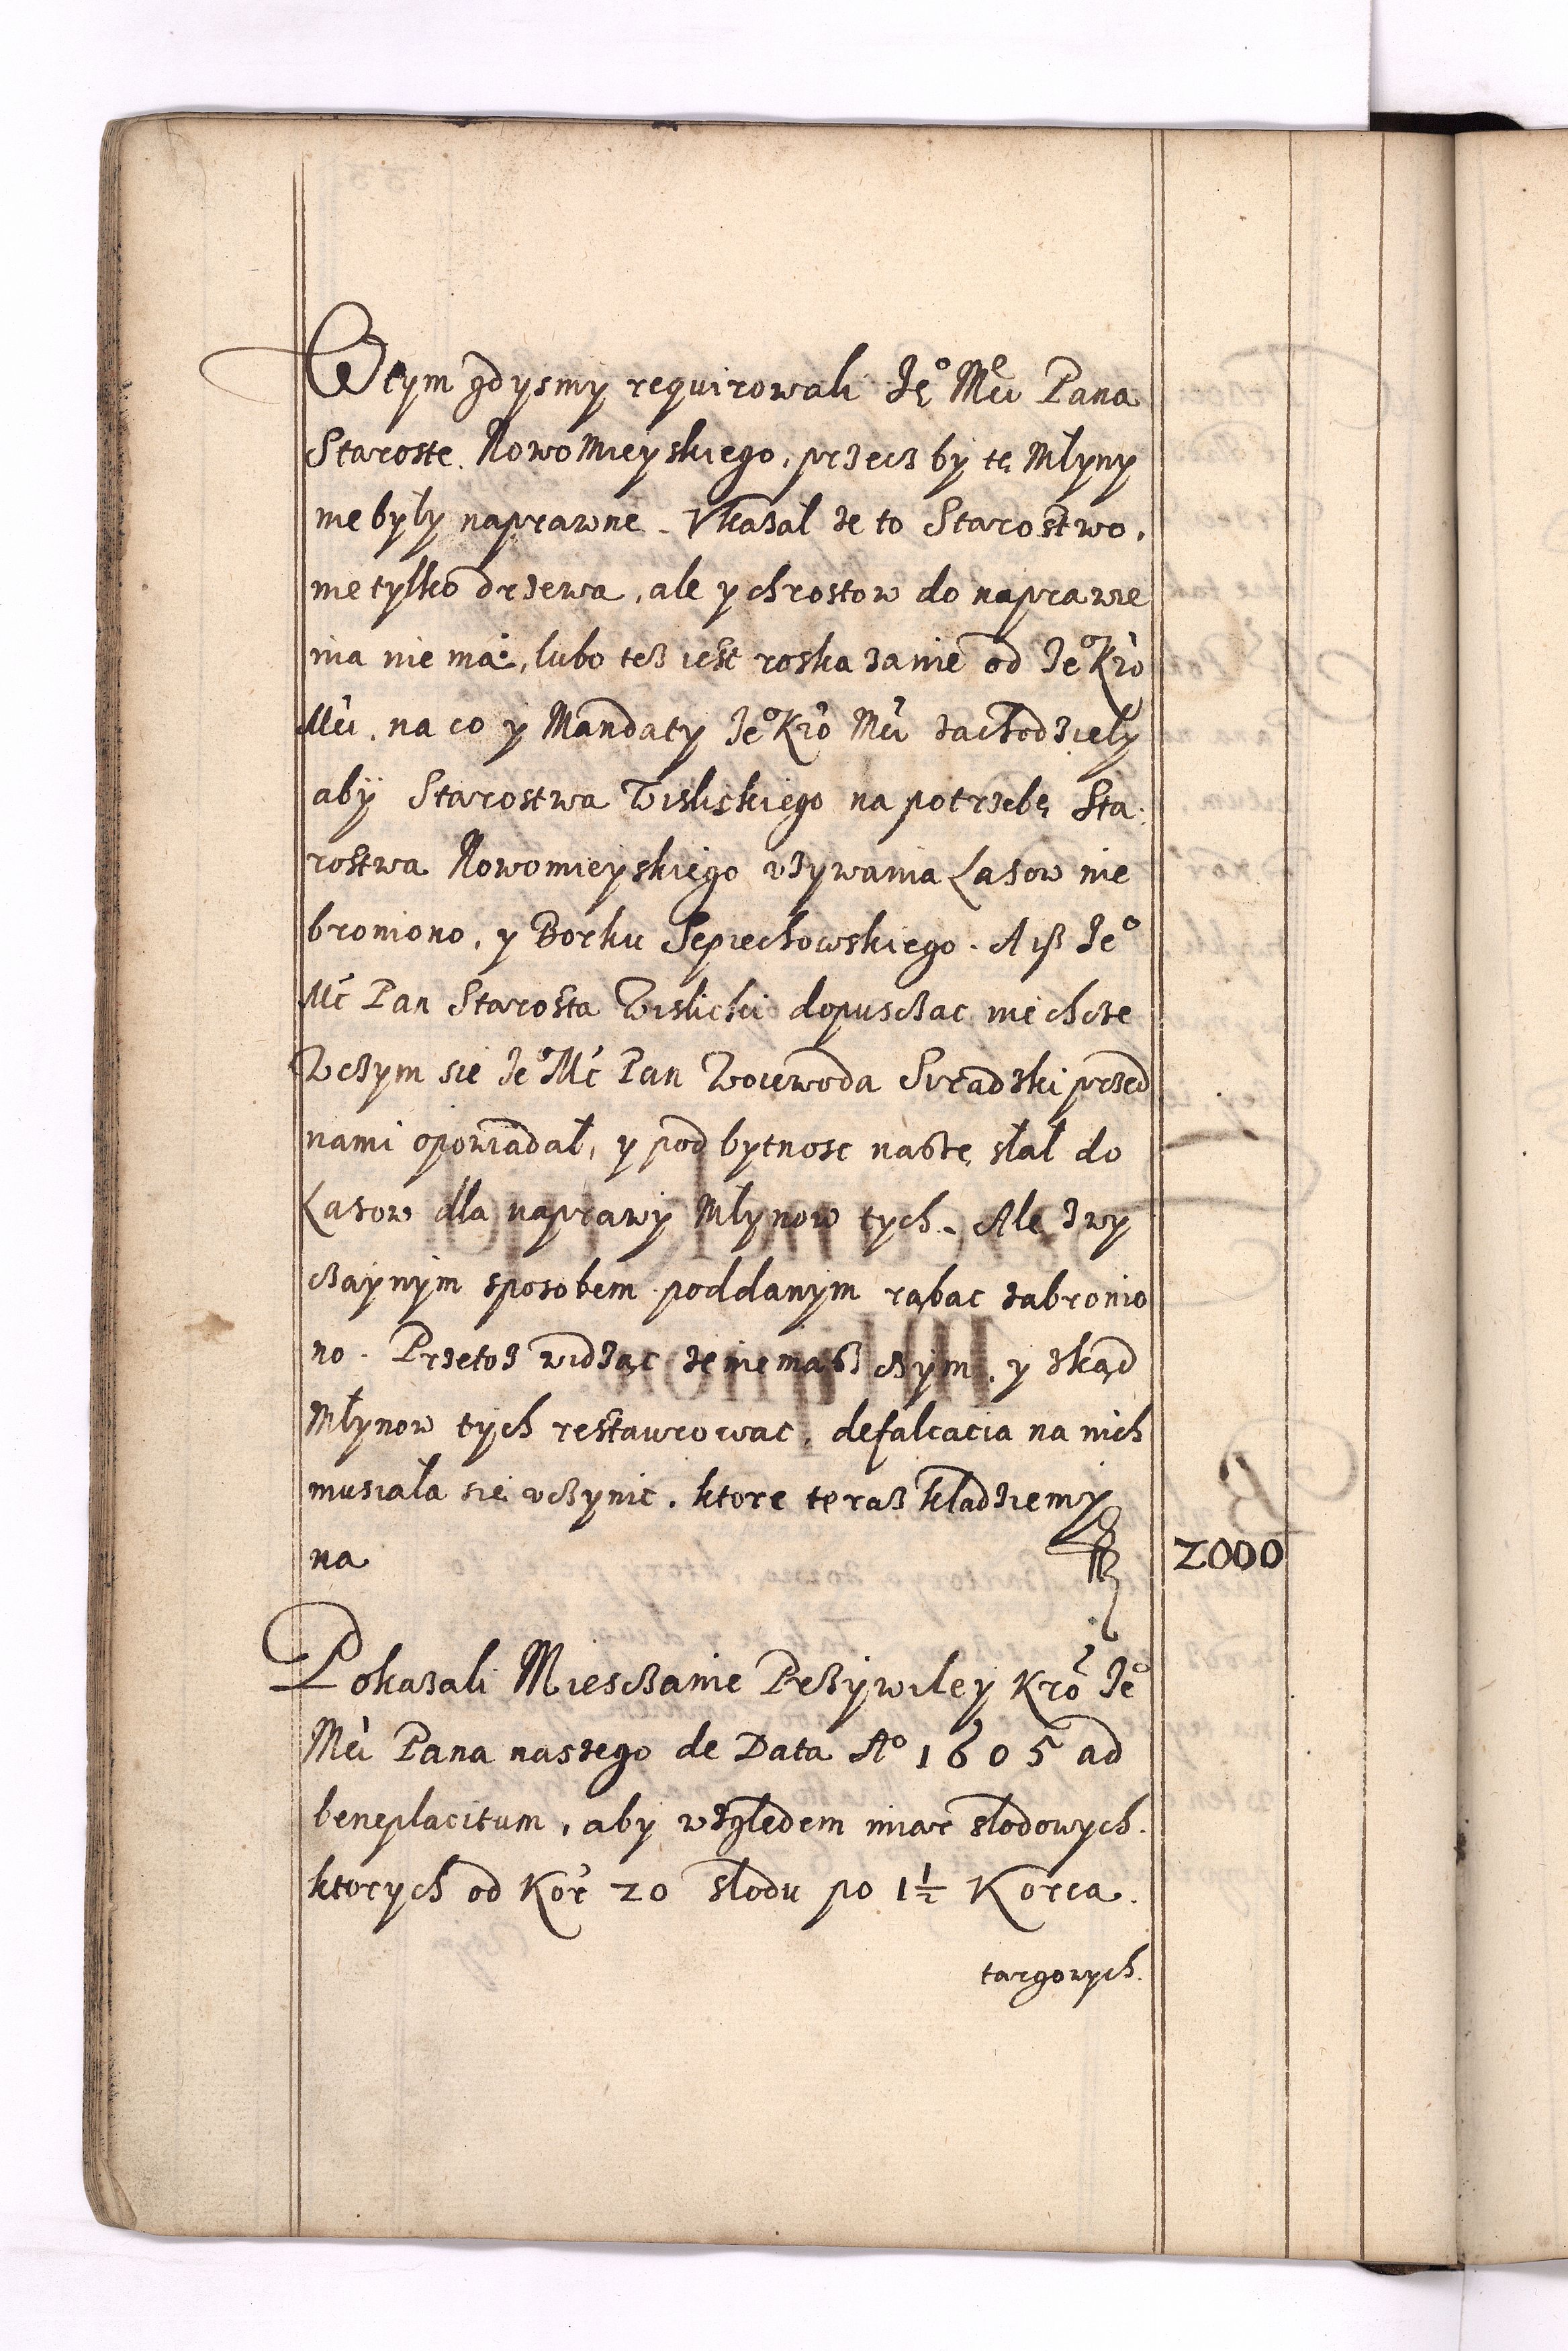 Wtym gdysmy requirowali Je͡o Mći Pana
Staroste Nowomieyskiego, przecz by tę Młyny
nie były naprawne. Vkazał że to Starostwo,
nie tylko drzewa, ale y chrostow do naprawie
nia nie ma, lubo też iest roskazanie od Je͡o Kro
Mći, na co y Mandaty Je͡o Kro Mći zachodzieły
aby Starostwa Wislickiego na potrzebę Sta
rostwa Nowomieyskiego vzywania Lasow nie
broniono, y Borku Sepiechowskiego. A iż Je͡o
Mć Pan Starosta Wislicki dopuszczac nie chcze
Wczym sie Je͡o Mć Pan Woiewoda Siradzki przed
nami opowiadał, y pod bytnosc naszę słał do
Lasow dla naprawy Młynow tych. Ale zwy
czaynym sposobem poddanym rąbac zabronio
no. Przetoz widząc że nie masz czym, y zkąd
Młynow tych restaurowac, defalcacia na nich
musiała się vczynic, ktore teraz kładziemy
na 2000
Pokazali Miesczanie Przywiley Kro Je͡o
Mći Pana naszego de Data Aº 1605 ad
beneplacitum, aby względem miar słodowych
ktorych od Kor 20 słodu po 1½ Korca
targowych